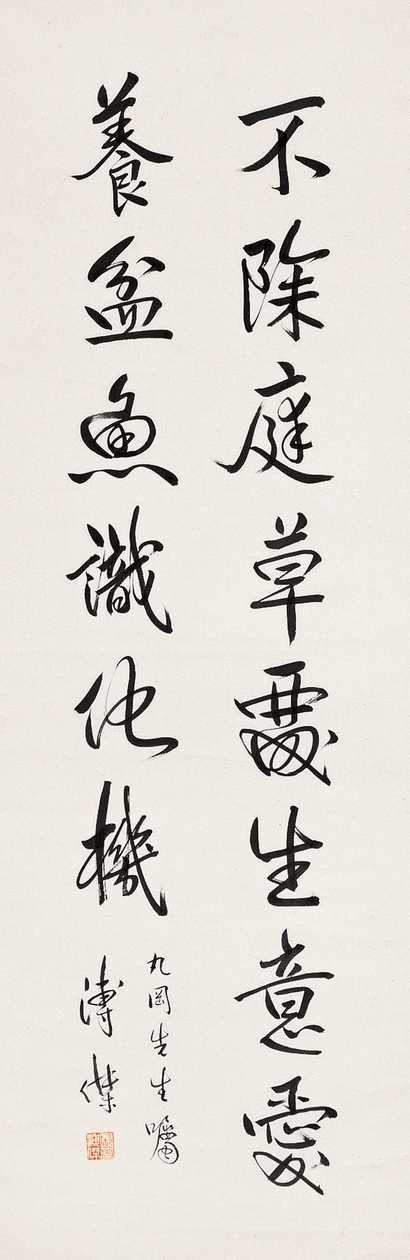 不除庭草生意愛
養盆魚識化機
丸岡先生囑
溥傑